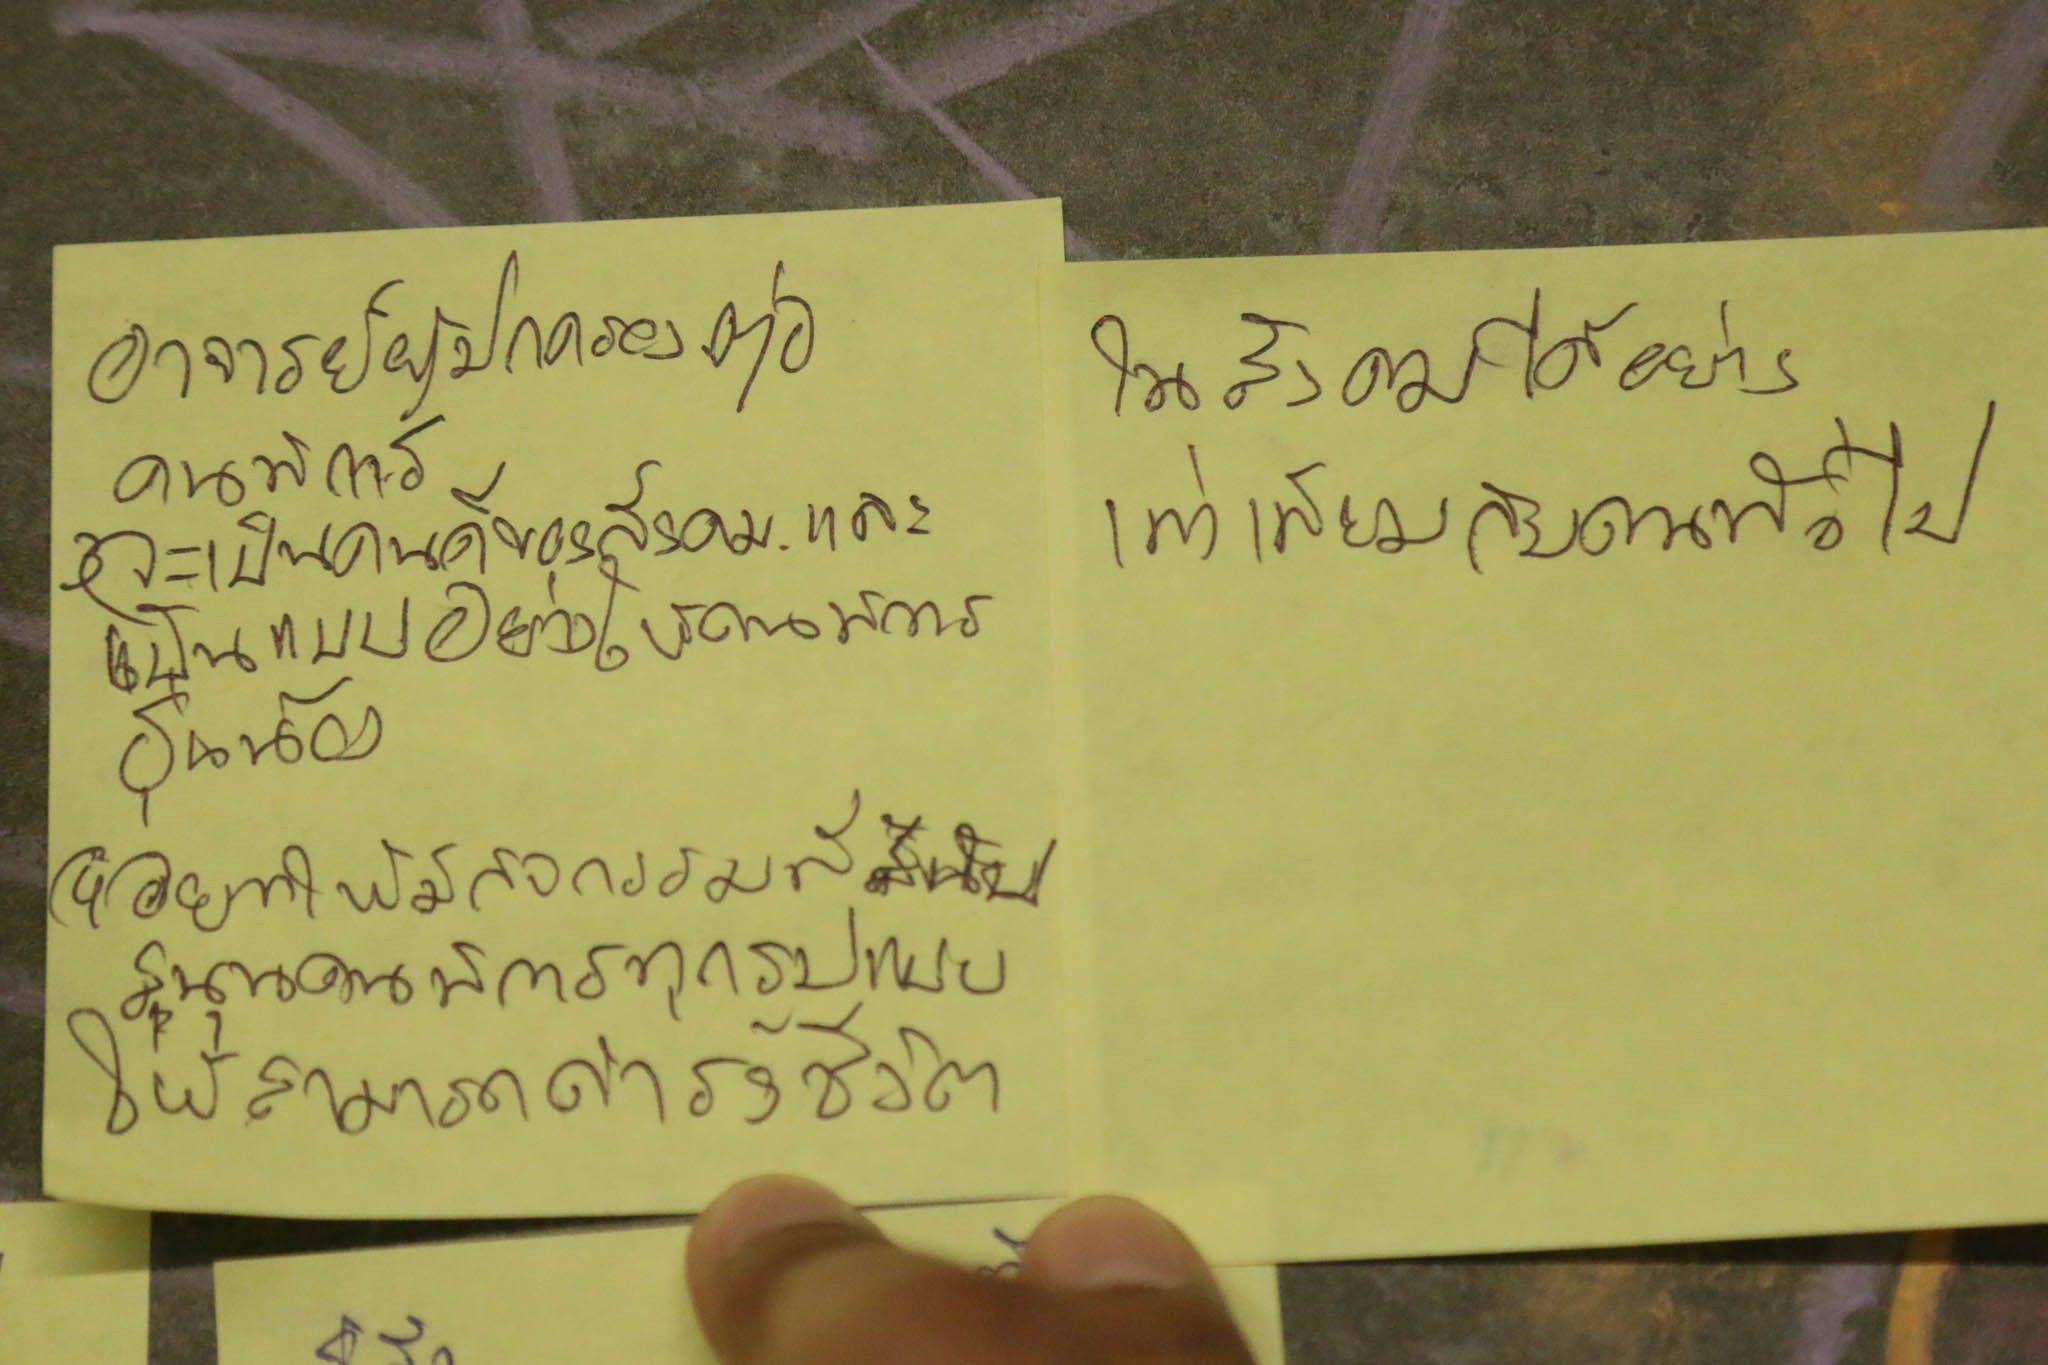 อาจารย์ผู้ปกครองต่อ
คนพิการ
จะเป็นคนดีของสังคม.และ
เป็นแบบอย่างให้คนพิการ
รุ่นน้อง
อยากให้มีกิจกรรมที่
คนพิการทุกรูปแบบ
ให้สามารถดำรงชีวิต
ในสังคมได้อย่าง
เท่าเทียมกับคนทั่วไป